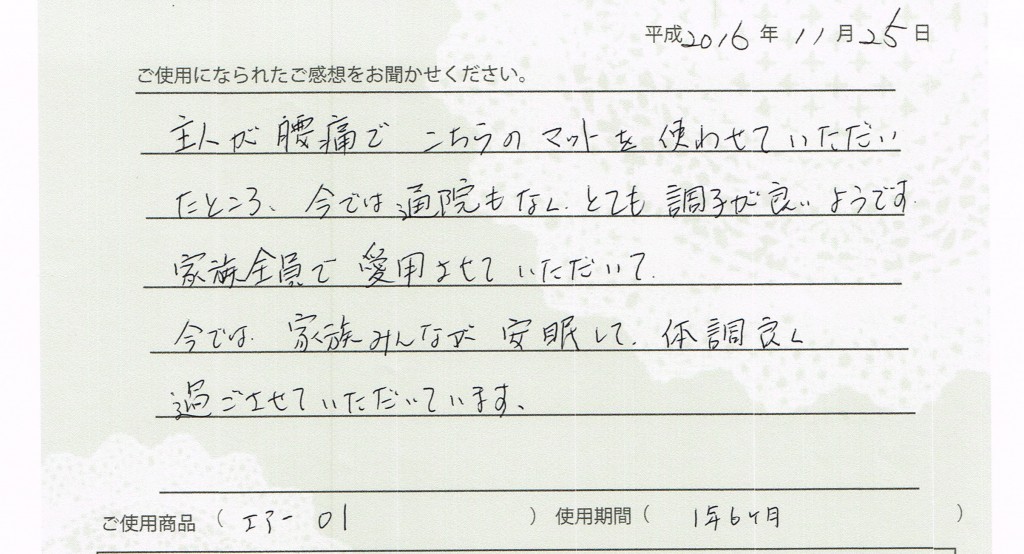 平成2016年11月25日
ご使用になられたご感想をお聞かせください。
主人が腰痛で こちらのマットを使わせていただい
たところ、今では通院もなく、とても調子が良いようです。
家族全員で愛用させていただいて、
今では、家族みんなが安眠して、体調良く
過ごさせていただいています。
ご使用商品（エアー01）使用期間（1年6ヶ月）